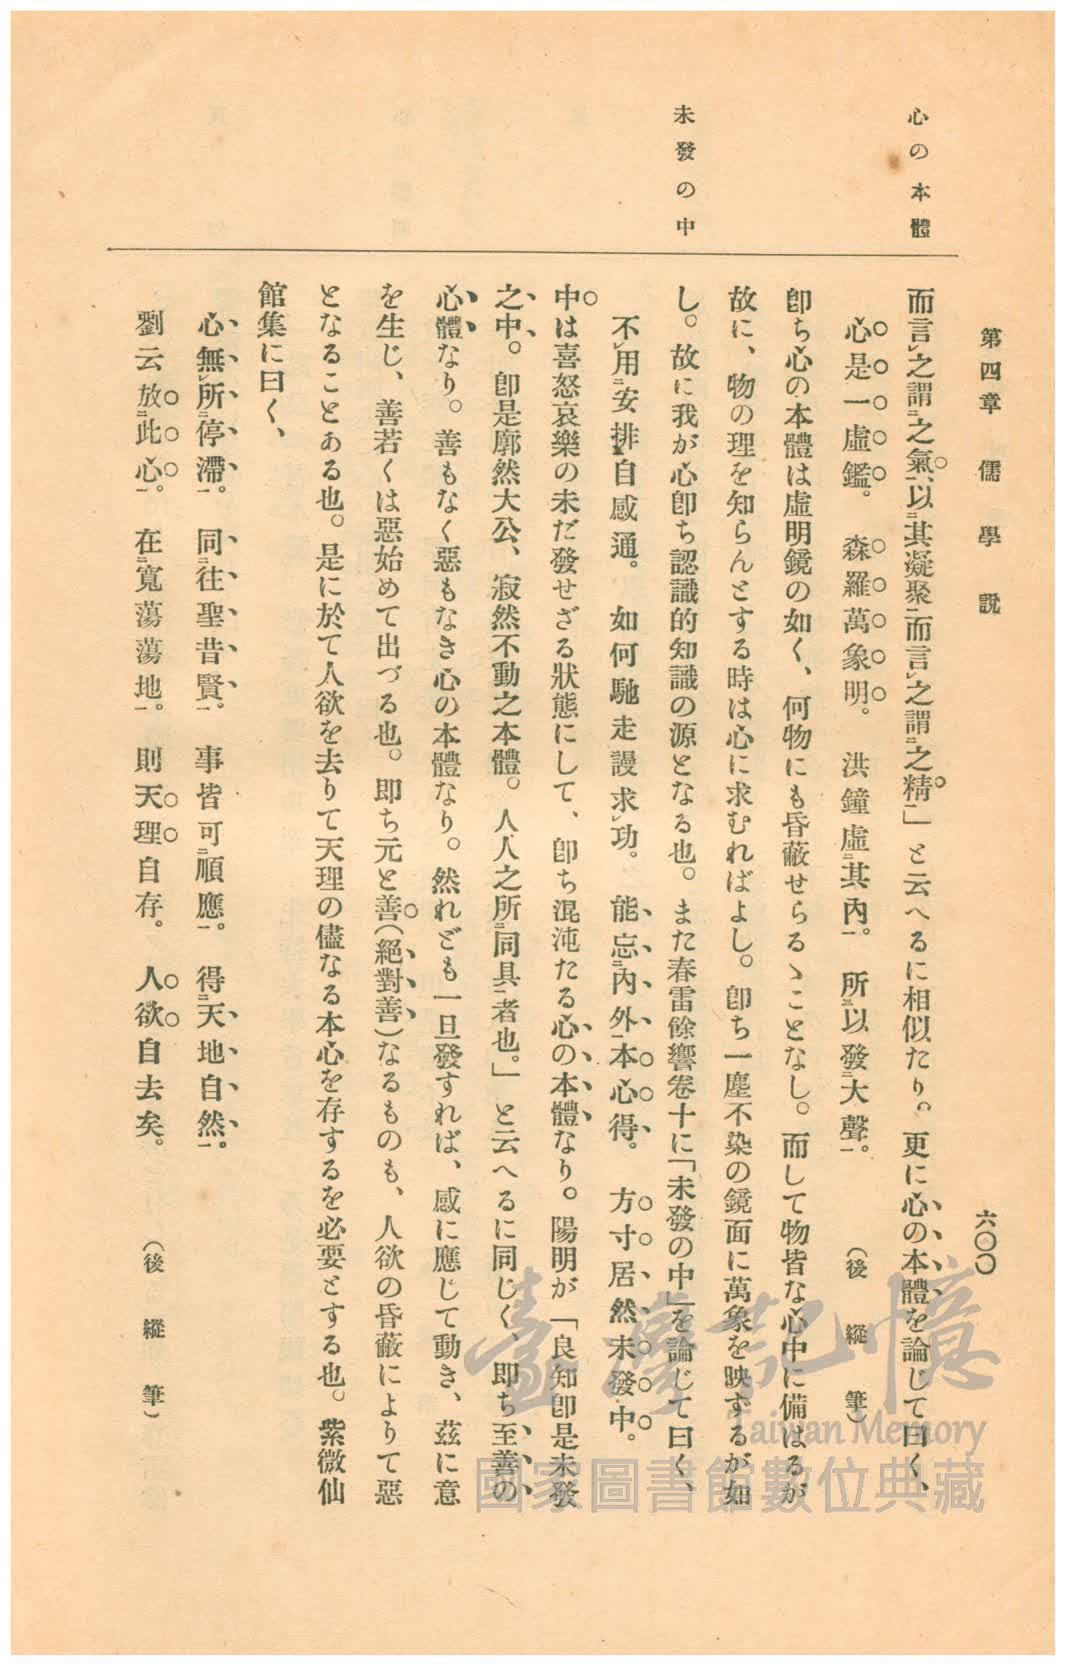 第四章 儒學說
六〇〇
心の本體
未發の中
而言㆑之謂㆓之氣㆒、以㆓其凝聚㆒而言㆑之謂㆓之精㆒」と云へるに相似たり。更に心の本體を論じて曰く、
心是一虛鑑。 森羅萬象明。 洪鐘虛㆓其內㆒。 所㆓以發㆓大聲㆒。 (後縱筆)
卽ち心の本體は虛明鏡の如く、何物にも昏蔽せらるゝことなし。而して物皆な心中に備はるが
故に、物の理を知らんとする時は心に求むればよし。卽ち一塵不染の鏡面に萬象を映ずるが如
し。故に我が心卽ち認識的知識の源となる也。また春雷餘響卷十に「未發の中」を論じて曰く、
不㆑用㆓安排㆒自感通。 如何馳走謾求㆑功。 能忘㆓內外㆒本心得。 方寸居然未發中。
中は喜怒哀樂の未だ發せざる狀態にして、卽ち混沌たる心の本體なり。陽明が「良知卽是未發
之中。卽是廓然大公、寂然不動之本體。人人之所㆓同具㆒者也。」と云へるに同じく、卽ち至善の
心體なり。善もなく惡もなき心の本體なり。然れども一旦發すれば、感に應じて動き、茲に意
を生じ、善若くは惡始めて出づる也。卽ち元と善(絕對善)なるものも、人欲の昏蔽によりて惡
となることある也。是に於て人欲を去りて天理の儘なる本心を存するを必要とする也。紫微仙
館集に曰く、
心無㆑所㆓停滯㆒。 同㆓往聖昔賢㆒。 事皆可㆓順應㆒。 得㆓天地自然㆒。
劉云放㆓此心㆒。 在㆓寬蕩蕩地㆒。 則天理自存。 人欲自去矣。 (後縱筆)
臺灣記憶
Taiwan Memory
國家圖書館數位典藏